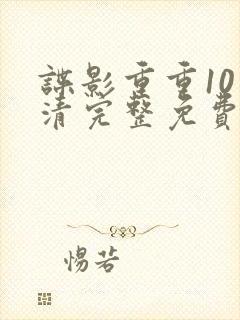 諜影重重10
清完整免費
惕若